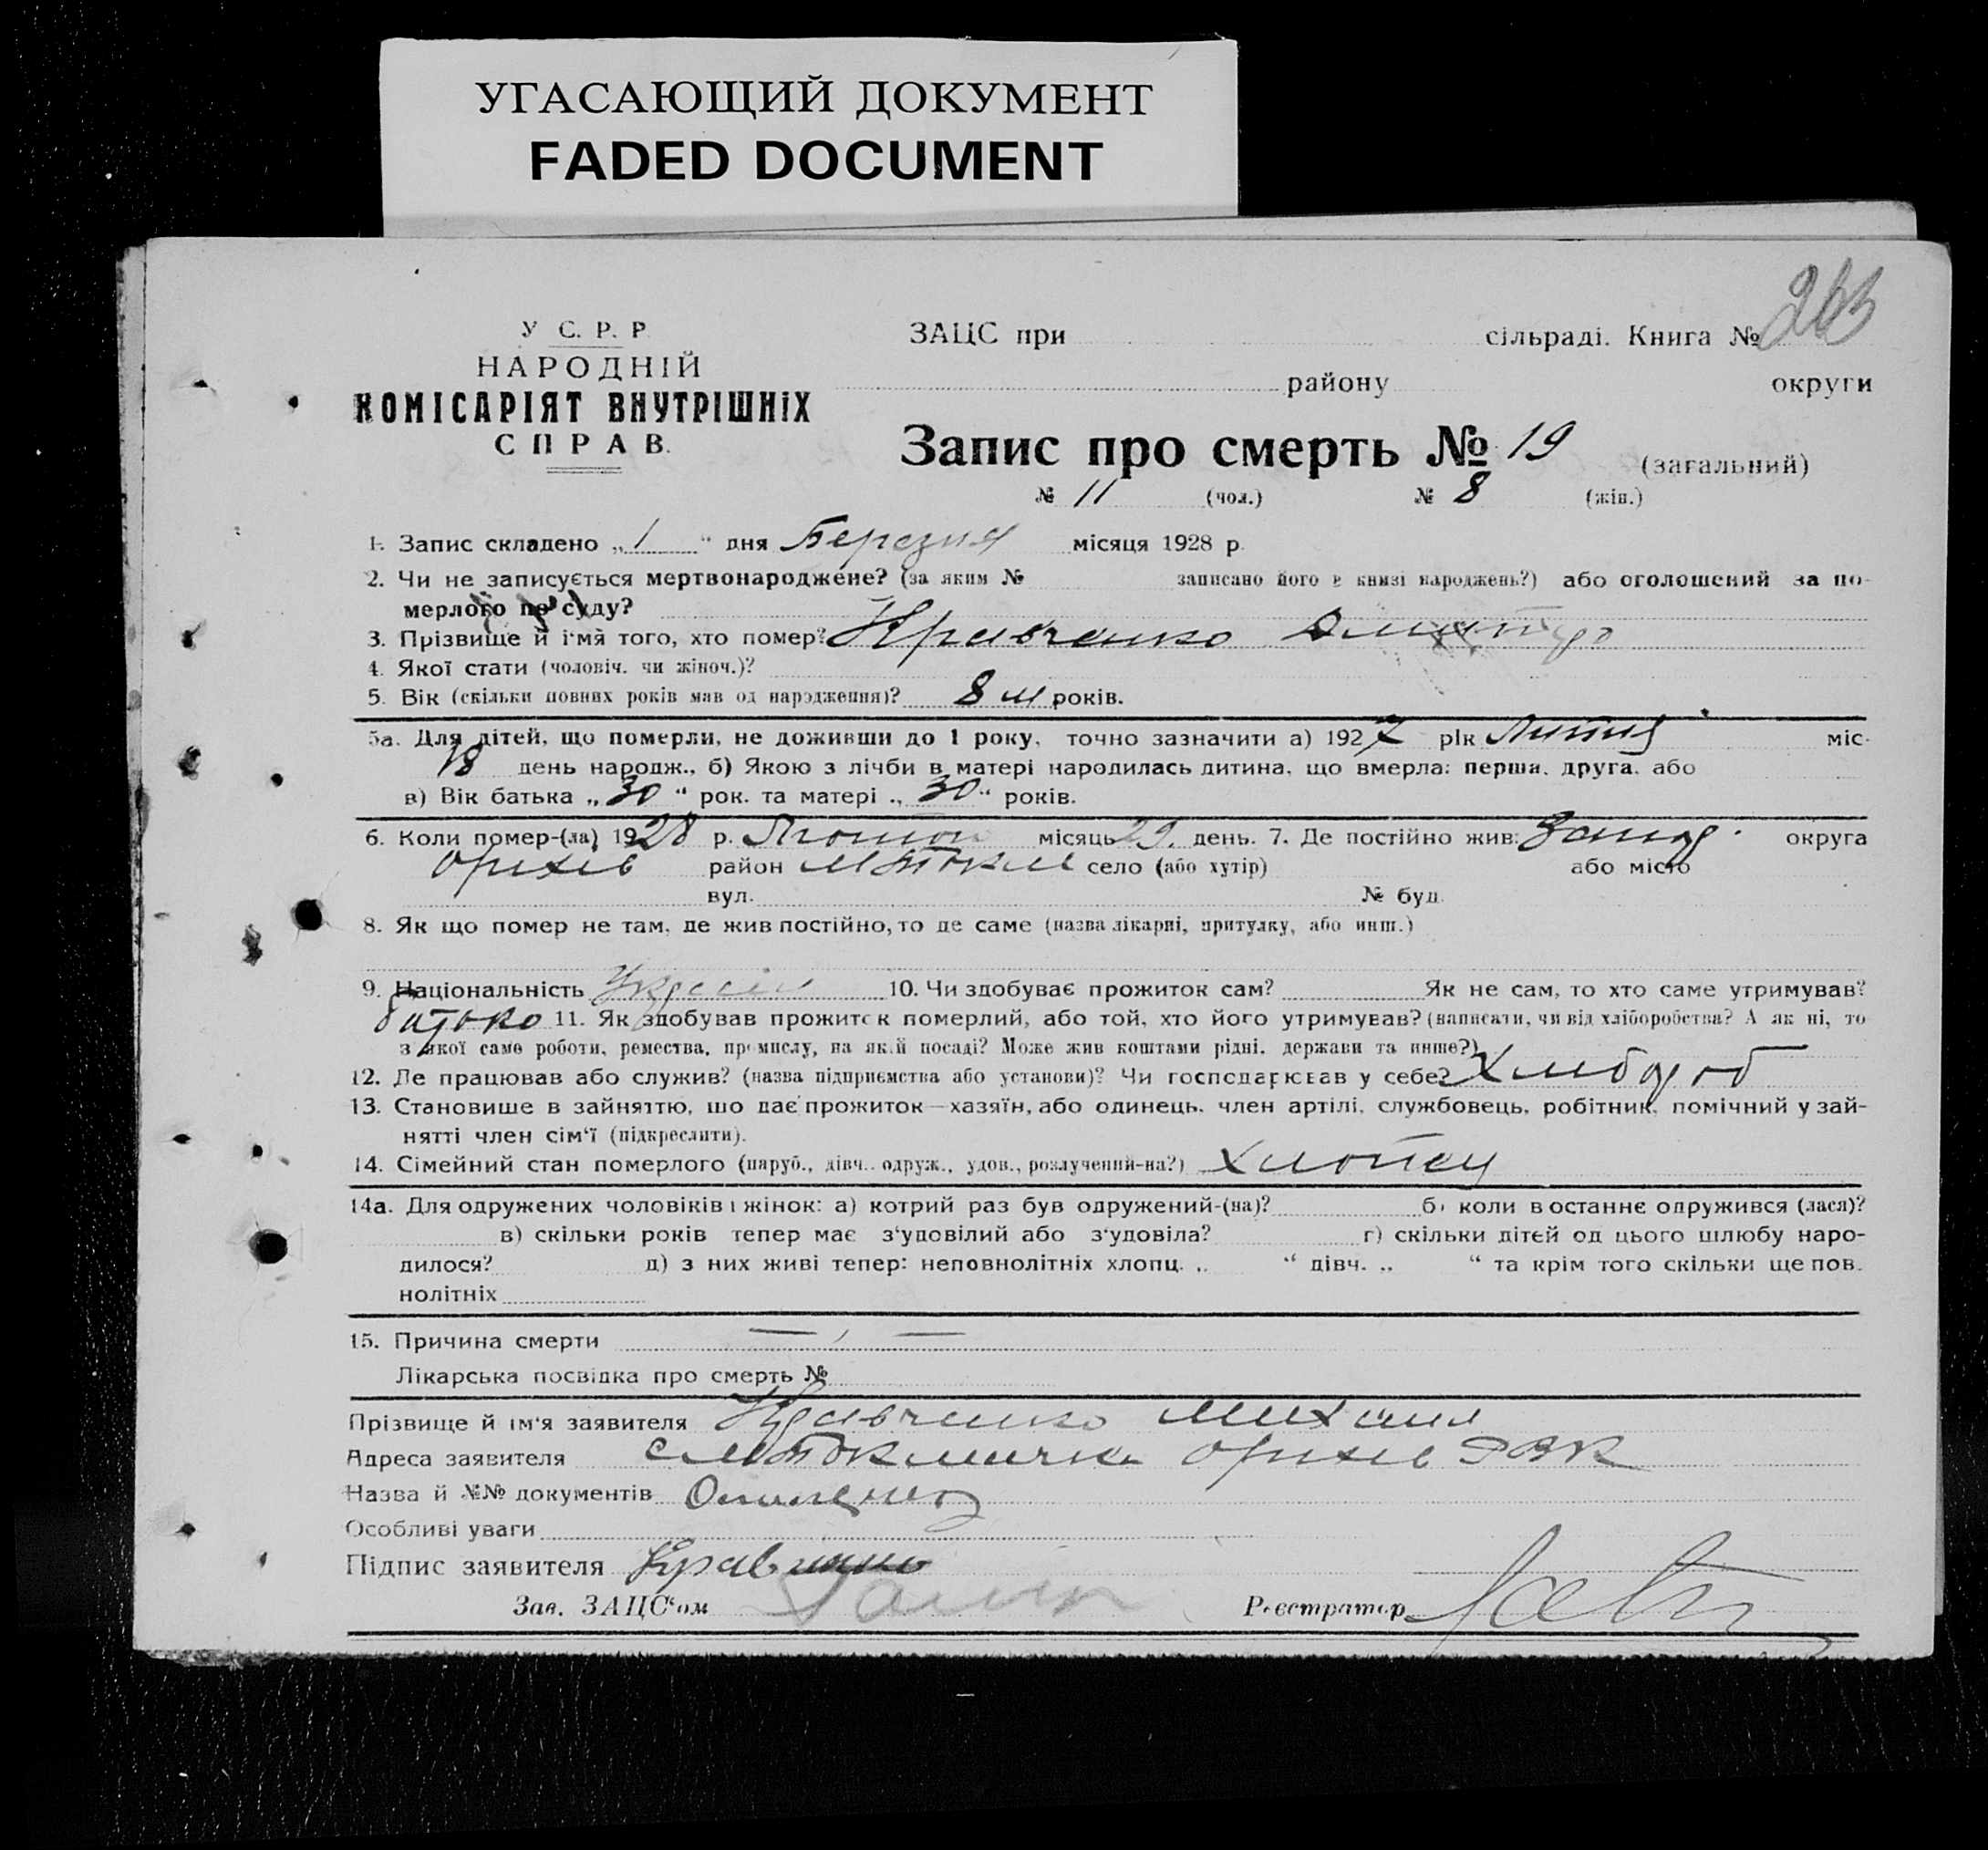 УГАСАЮЩИЙ ДОКУМЕНТ
FADED DOCUMENT
У С. Р. Р.
НАРОДНІЙ
КОМІСАРІЯТ ВНУТРІШНІХ
СПРАВ.
ЗАЦС при сільраді. Книга №
району округи
Запис про смерть № 19 (загальний)
№ 11 (чол.) № 8 (жін.)
1. Запис складено „1“ дня Березня місяця 1928 р.
2. Чи не записується мертвонароджене? (за яким № записано його в книзі народжень?) або оголошений за по-
мерлого по суду?
3. Прізвище й ім‘я того, хто помер? Кравченко Дмитро
4. Якої стати (чоловіч. чи жіноч.)?
5. Вік (скільки повних років мав од народження)? 8 м років.
5а. Для дітей, що померли, не доживши до 1 року, точно зазначити а) 1927 рік Липня міс.
18 день народж., б) Якою з лічби в матері народилась дитина, що вмерла: перша, друга, або
в) Вік батька „30“ рок. та матері „30“ років.
6. Коли помер-(ла) 1928 р. Лютого місяць 29. день. 7. Де постійно жив: Запор. округа
Оріхів район М Токм село (або хутір) або місто
вул. № буд.
8. Як що помер не там, де жив постійно, то де саме (назва лікарні, притулку, або инш.)
9. Національність 10. Чи здобуває прожиток сам? Як не сам, то хто саме утримував?
батько 11. Як здобував прожиток померлий, або той, хто його утримував? (написати, чи від хліборобства? А як ні, то
з якої саме роботи, ремества, промислу, на якій посаді? Може жив коштами рідні, держави та инше?)
12. Де працював або служив? (назва підприємства або установи)? Чи господарював у себе? Хлібороб
13. Становище в зайняттю, що дає прожиток—хазяїн, або одинець, член артілі, службовець, робітник, помічний у зай-
нятті член сім‘ї (підкреслити).
14. Сімейний стан померлого (паруб., дівч. одруж., удов., розлучений-на?) хлопец
14а. Для одружених чоловіків і жінок: а) котрий раз був одружений-(на)? б) коли востаннє одружився (лася)?
в) скільки років тепер має з‘удовілий або з‘удовіла? г) скільки дітей од цього шлюбу наро-
дилося? д) з них живі тепер: неповнолітніх хлопц. „ “ дівч. „ “ та крім того скільки ще пов.
нолітніх
15. Причина смерти — , —
Лікарська посвідка про смерть №
Прізвище й ім‘я заявителя Кравченко Михаил
Адреса заявителя с М Токмачка Оріхів РВК
Назва й №№ документів
Особливі уваги
Підпис заявителя Кравченко
Зав. ЗАЦС‘ом Реєстратор